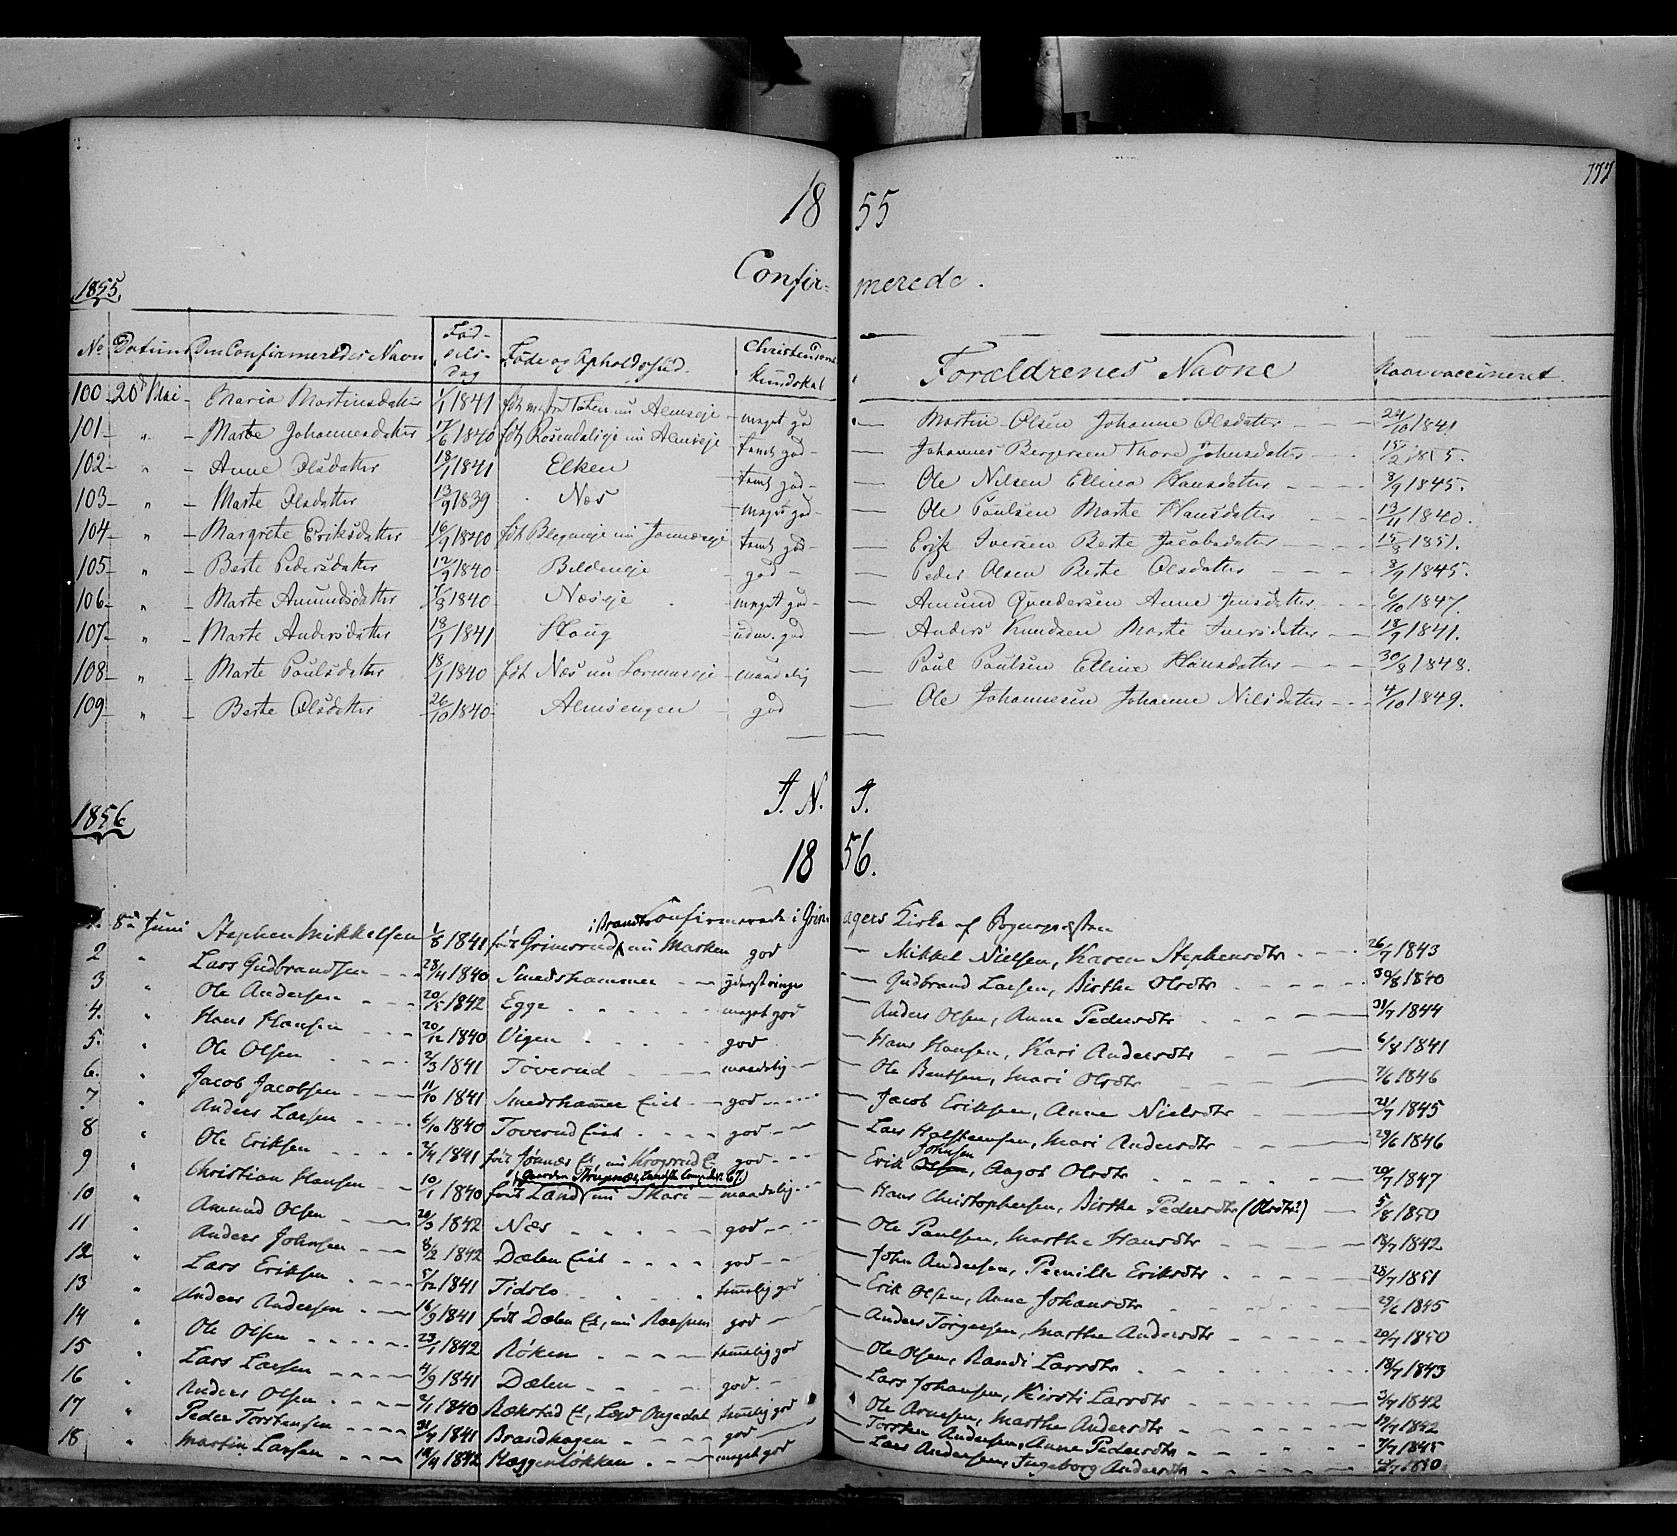 177
18 55
Confir- merede.
1855.
No Datum Den Confirmeredes Navn Fød- sels- dag Føde og Opholdssted Christendoms kundskab Forældrenes Navne Naar vaccineret.
100 20d Mai Maria Martinsdatter 1/1 1841 Toten nu Almseje meget god Martin Olsen Johanne Olsdatter 24/10 1841
101 " Marte Johannesdatter 17/6 1840 født Rosendaleje nu Almseje temt god Johannes Bergersen Thore Johnsdatter
102 " Anne Olsdatter 18/1 1841 Elken temt god Ole Nilsen Elline Hansdatter 8/9 1845.
103 " Marte Olsdatter 13/9 1839 Næs meget god Ole Paulsen Marte Hansdatter 13/11 1840.
104 " Margrete Eriksdatter 16/9 1840 født nu temt god Erik Iversen Berte Jacobsdatter 1851.
105 " Berte Pedersdatter 12/9 1840 god Peder Olsen Berte Olsdatter 8/9 1845.
106 " Marte Amundsdatter 7/8 1840 Næseje meget god Amund Gundersen Anne Jensdatter 6/10 1847.
107 " Marte Andersdatter 18/1 1841 Haug udm. god Anders Knudsen Marte Iversdatter 18/9 1841.
108 " Marte Paulsdatter 18/1 1840 født Næs nu maadelig Paul Paulsen Elline Hansdatter 30/8 1848.
109 " Berte Olsdatter 26/10 1840 Almsengen god Ole Johannesen Johanne Nilsdatter 4/10 1849.
I. N. I.
1856
18 56.
Confirmerede i Grin- agers Kirke af Sognepræsten
1. 8de Juni Stephen Mikkelsen 1/8 1841 født Grimsrud i Brandbo nu Marken god Mikkel Nielsen, Karen Stephensdtr 26/7 1843
2 " Lars Gudbrandsen 28/11 1840 Smedshammer yderst ringe Gudbrand Larsen, Birthe Olsdtr 30/8 1840
3 " Ole Andersen 20/5 1842 Egge meget god Anders Olsen, Anne Pedersdtr 1844
4. " Hans Hansen 20/12 1840 Vigen god Hans Hansen, Kari Andersdtr 6/8 1841
5. " Ole Olsen 2/3 1841 Toverud maadelig Ole Bentsen, Mari Olsdtr 7/6 1846
6. " Jacob Jacobsen 11/10 1841 Smedshammer Eiet god Jacob Eriksen, Anne Nielsdtr 21/7 1845
7 " Anders Larsen 6/10 1840 Toverud Eiet god Lars Halsteensen, Mari Andersdtr 29/6 1846
8 " Ole Eriksen 2/4 1841 født Jønnæs E, nu Krogsrud E god Erik Olsen Johnsen, Aagot Olsdtr 20/7 1847
9 " Christian Hansen 10/1 1840 født Land nu Skari maadelig Hans Christophersen, Birthe Pedersdtr (Olsdtr?) 5/8 1850
10 " Amund Olsen 20/3 1842 Næs god Ole Paulsen, Marthe Hansdtr 18/7 1842
11 " Anders Johnsen 8/2 1842 Dælen Eiet god John Andersen, Pernille Eriksdtr 28/7 1851
12 " Lars Eriksen 5/12 1841 Tidslo temmelig god Erik Olsen, Anne Johansdtr 29/6 1845
13 " Anders Andersen 16/9 1841 født Dælen E, nu god Anders Torgersen, Marthe Andersdtr 20/7 1850
14 " Ole Olsen 23/1 1842 Røken temmelig god Ole Olsen, Randi Larsdtr 18/7 1843
15 " Lars Larsen 4/9 1841 Dælen god Lars Johansen, Kirsti Larsdtr 3/7 1842
16 " Anders Olsen 2/1 1840 temmelig god Ole Arnesen, Marthe Andersdtr 1842
17 " Peder Torstensen 1841 Brandhagen god Torsten Andersen, Anne Pedersdtr 7/7 1845
18 " Martin Larsen 1842 Kloggerløkken meget god Lars Andersen, Ingeborg Andersdtr 1850